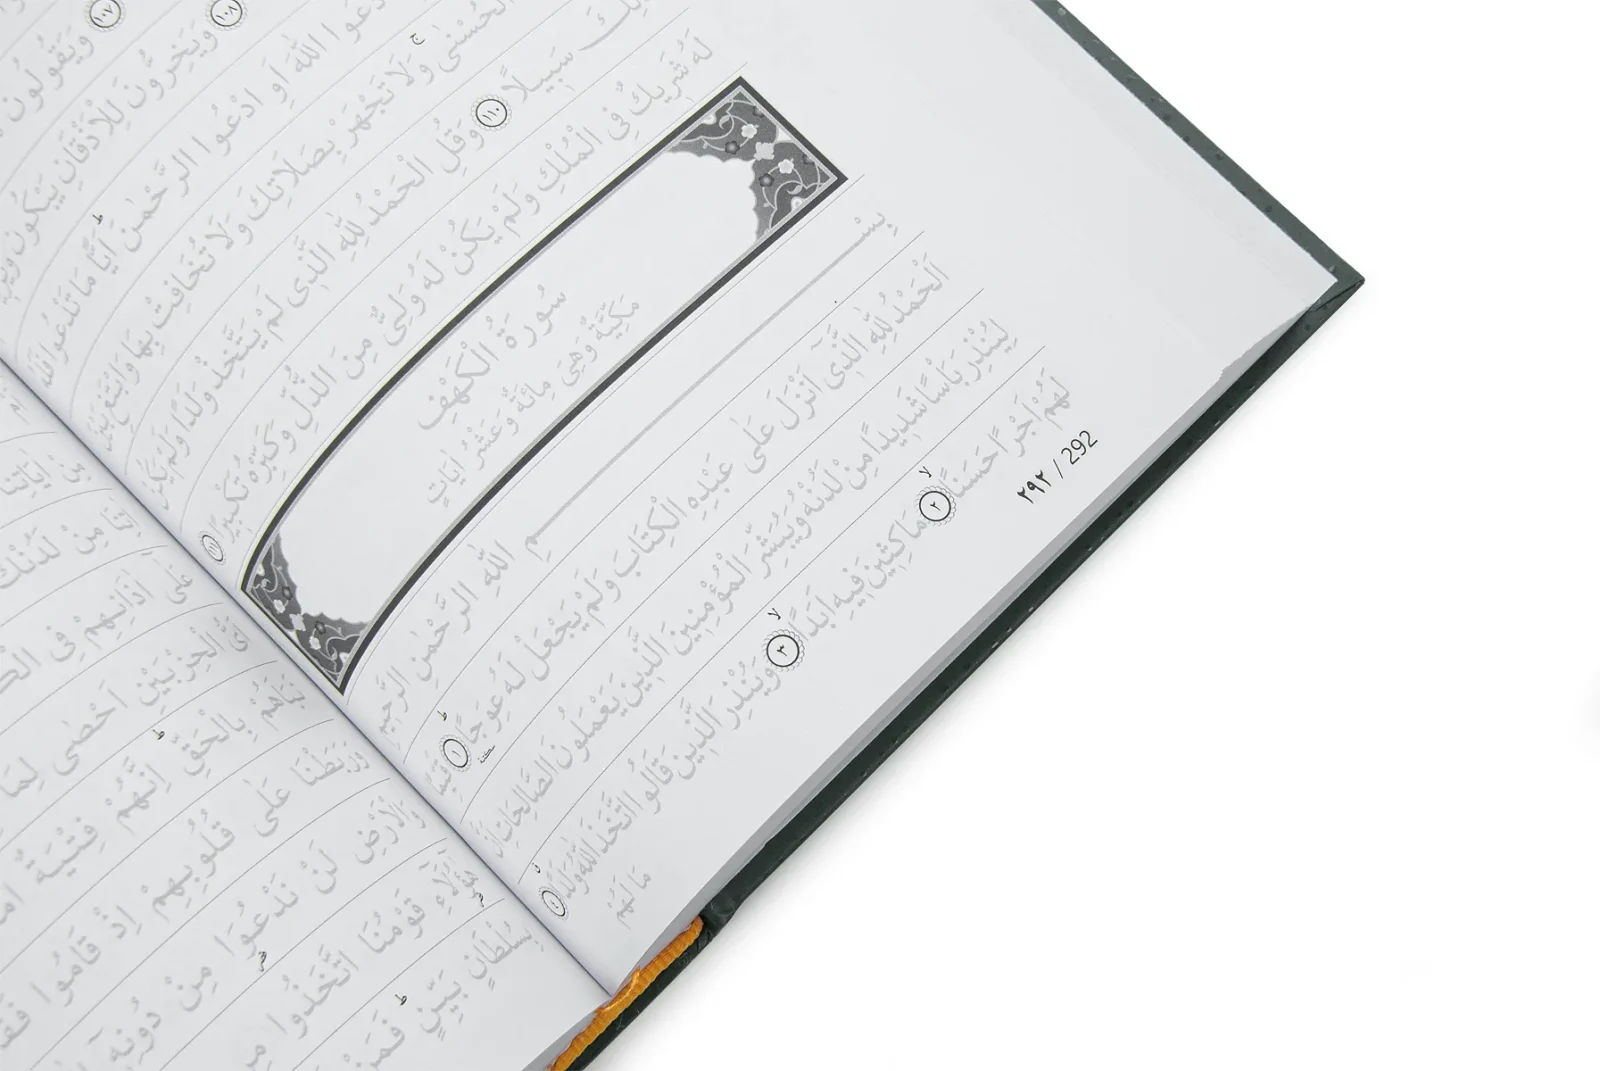 ﴿١٠٧﴾ وَيَقُولُونَ
﴿١٠٨﴾ وَيَخِرُّونَ لِلْاَذْقَانِ يَبْكُونَ
دْعُوا اللّٰهَ اَوِ ادْعُوا الرَّحْمٰنَۜ اَيًّا مَا تَدْعُوا فَلَهُ
الْحُسْنٰىۚ وَلَا تَجْهَرْ بِصَلَاتِكَ وَلَا تُخَافِتْ بِهَا وَابْتَغِ بَيْنَ
ذٰلِكَ سَبِيلًا ﴿١١٠﴾ وَقُلِ الْحَمْدُ لِلّٰهِ الَّذِى لَمْ يَتَّخِذْ وَلَدًا وَلَمْ يَكُنْ
لَهُ شَرِيكٌ فِى الْمُلْكِ وَلَمْ يَكُنْ لَهُ وَلِىٌّ مِنَ الذُّلِّ وَكَبِّرْهُ تَكْبِيرًا ﴿١١١﴾
سُورَةُ الْكَهْفِ
مَكِّيَّةٌ وَهِىَ مِائَةٌ وَعَشْرُ اٰيَاتٍ
بِسْمِ اللّٰهِ الرَّحْمٰنِ الرَّحِيمِ
اَلْحَمْدُ لِلّٰهِ الَّذِى اَنْزَلَ عَلٰى عَبْدِهِ الْكِتَابَ وَلَمْ يَجْعَلْ لَهُ عِوَجًاۜ ﴿١﴾ قَيِّمًا
لِيُنْذِرَ بَاْسًا شَدِيدًا مِنْ لَدُنْهُ وَيُبَشِّرَ الْمُؤْمِنِينَ الَّذِينَ يَعْمَلُونَ الصَّالِحَاتِ اَنَّ
لَهُمْ اَجْرًا حَسَنًاۙ ﴿٢﴾ مَاكِثِينَ فِيهِ اَبَدًاۙ ﴿٣﴾ وَيُنْذِرَ الَّذِينَ قَالُوا اتَّخَذَ اللّٰهُ وَلَدًا ﴿٤﴾
مَا لَهُمْ
٢٩٢ / 292
مِنْ لَدُنْكَ
عَلٰى اٰذَانِهِمْ فِى
اَىُّ الْحِزْبَيْنِ اَحْصٰى لِمَا
نَبَاَهُمْ بِالْحَقِّۜ اِنَّهُمْ فِتْيَةٌ
وَرَبَطْنَا عَلٰى قُلُوبِهِمْ اِذْ قَامُوا
وَالْاَرْضِ لَنْ نَدْعُوَا مِنْ دُونِهِ
هٰٓؤُلَاءِ قَوْمُنَا اتَّخَذُوا
بِسُلْطَانٍ بَيِّنٍۜ فَمَنْ